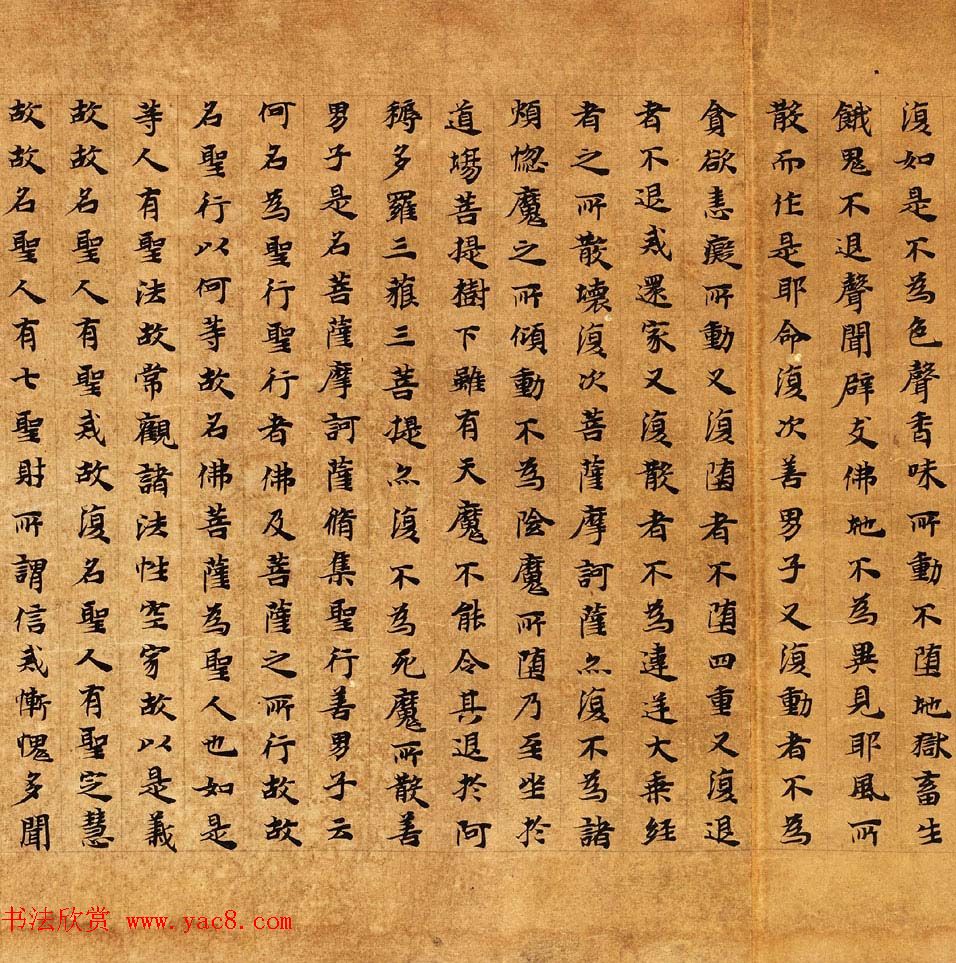 復如是不為色聲香味所動不堕地獄畜生
餓鬼不退聲聞辟支佛地不為異見耶風所
散而作是耶命復次善男子又復動者不為
貪欲恚癡所動又復堕者不堕四重又復退
者不退戒還家又復散者不為違逆大乗經
者之所散壞復次菩薩摩訶薩亦復不為諸
煩惚魔之所傾動不為陰魔所堕乃至坐於
道場菩提樹下雖有天魔不能令其退於阿
耨多羅三藐三菩提亦復不為死魔所散善
男子是名菩薩摩訶薩脩集聖行善男子云
何名為聖行聖行者佛及菩薩之所行故故
名聖行以何等故名佛菩薩為聖人也如是
等人有聖法故常觀諸法性空寂故以是義
故故名聖人有聖戒故復名聖人有聖定慧
故故名聖人有七聖財所謂信戒慚愧多聞
书法欣赏 www.yac8.com